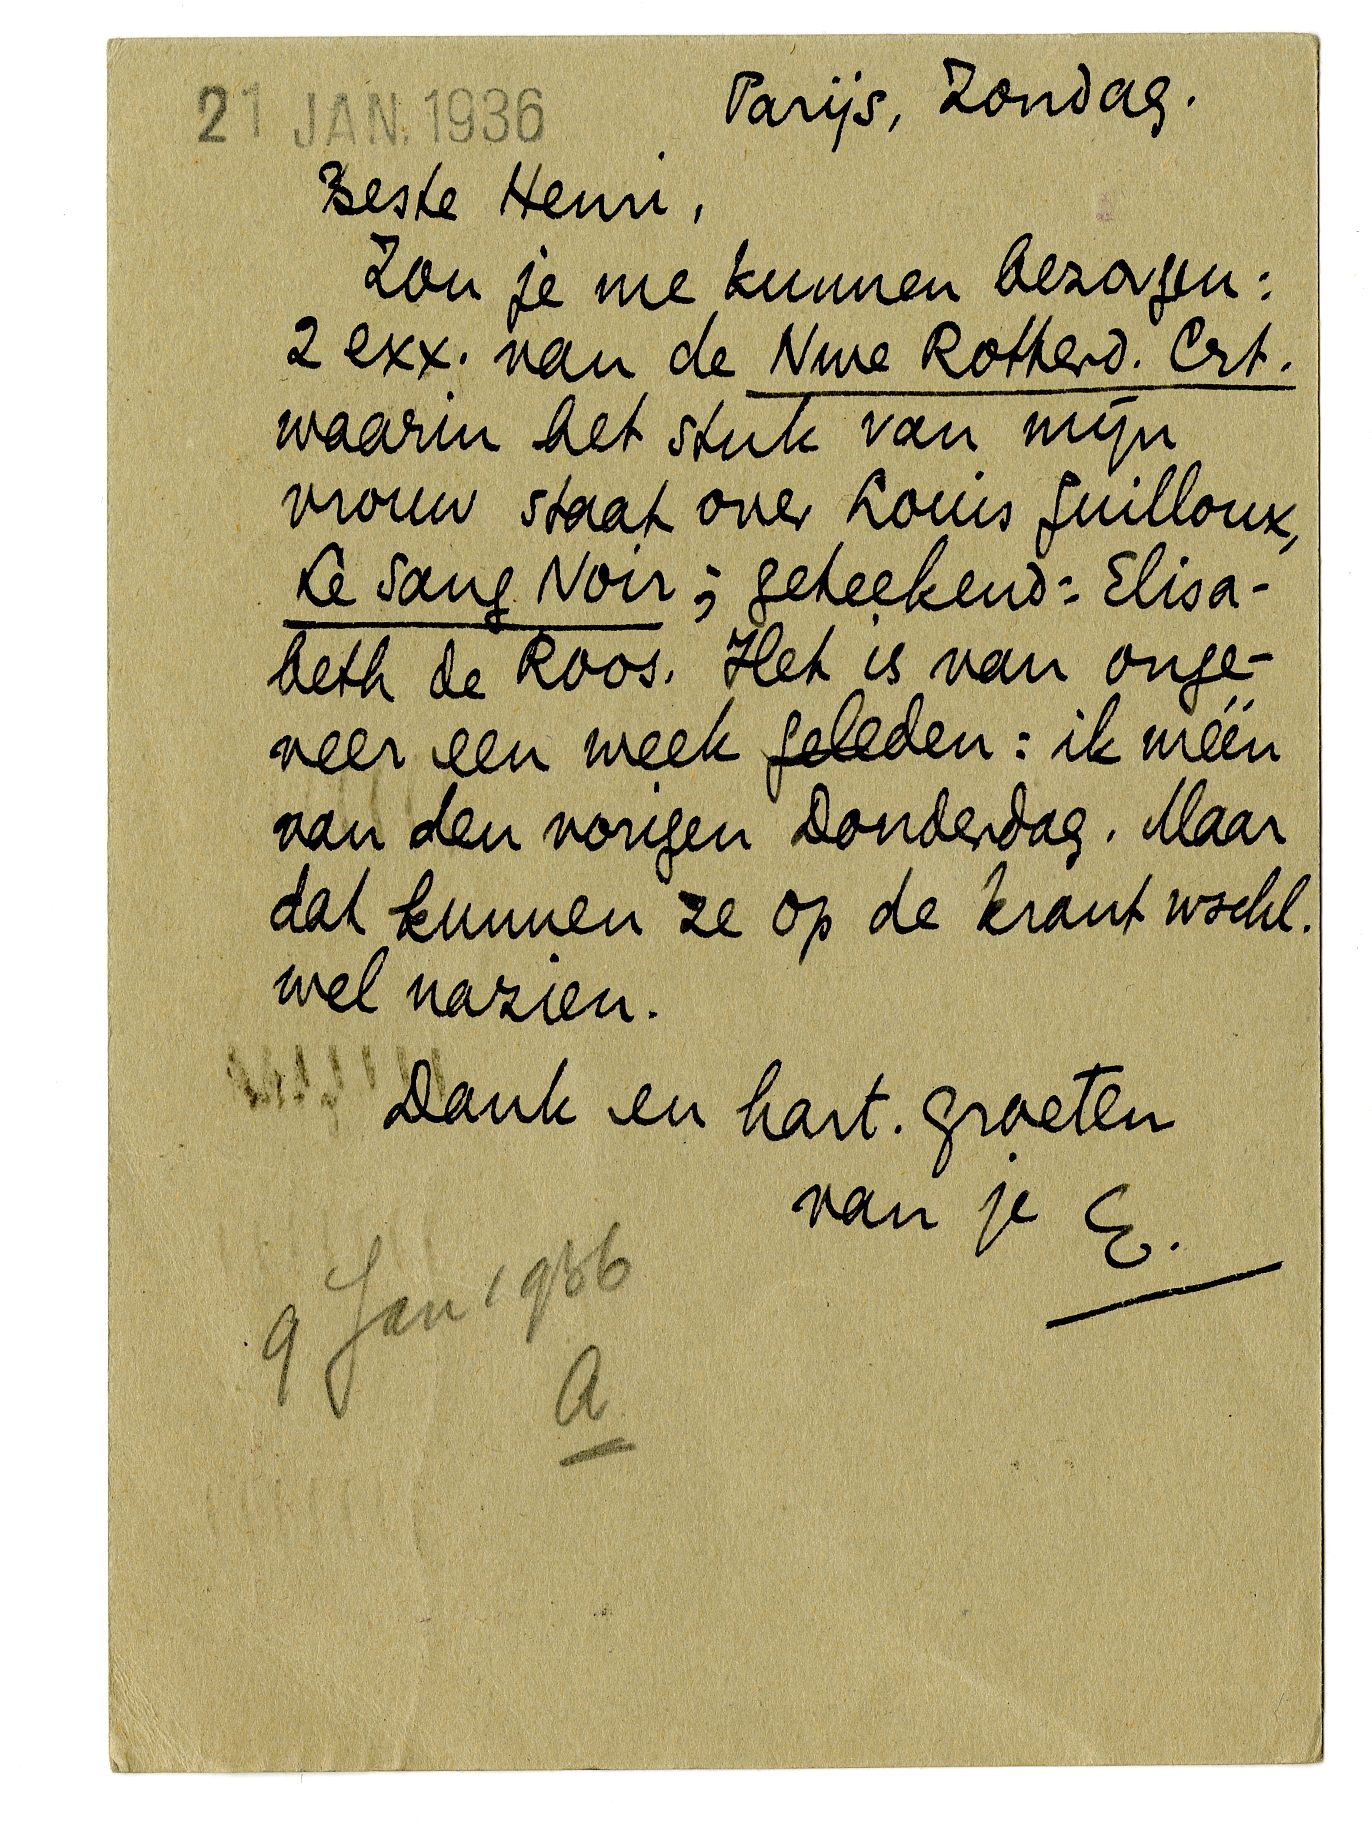 21 JAN. 1936
Parijs, Zondag.
Beste Henri,
Zou je me kunnen bezorgen:
2 exx. van de Nwe Rotterd. Crt.
waarin het stuk van mijn
vrouw staat over Louis Guilloux,
Le Sang Noir; geteekend: Elisa-
beth de Roos. Het is van onge-
veer een week geleden: ik méén
van den vorigen Donderdag. Maar
dat kunnen ze op de krant wschl.
wel nazien.
Dank en hart. groeten
van je E.
9 Jan 1936
A